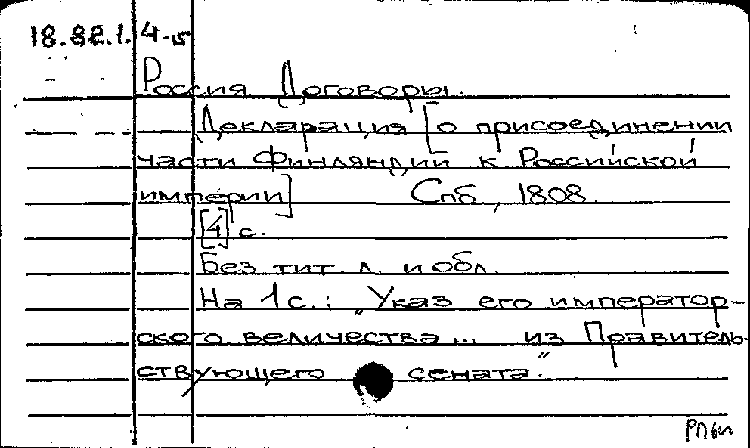 18.82.1.4-15
Россия Договоры.
Декларация [о присоединении
части Финляндии к Российской
империи] Спб, 1808.
[4] с.
Без тит. л. и обл.
На 1 с.: "Указ его император-
ского величества... из Правитель-
ствующего сената."